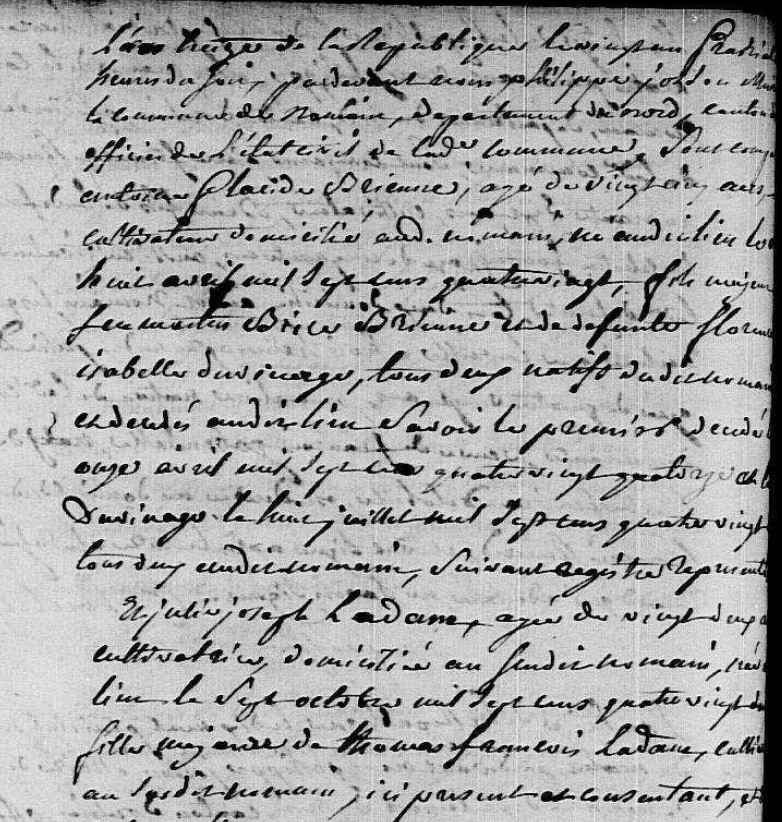 L'an treize de la Republique le vingt un Prairial
heures du soir, pardevant nous philippe
la commune de Nomain, departement du nord, canton
officier de l'état civil de lad.e commune, Sont comp
antoine Placide Brienne, agé de vingt cinq ans
cultivateur domicilié aud. nomain, né audit lieu le
huit avril mil sept cens quatre vingt, fils majeur
feu martin Brice Brienne et de defunte florence
isabelle duvinage, tous deux natifs dudit nomain
et decedés audit lieu Savoir le premier decedé l
onze avril mil sept cens quatre vingt quatorze et la
Duvinage le huit juillet mil Sept cens quatre vingt
tous deux audit nomain, Suivant registre representé
Et julie joseph Ladam, agée de vingt deux a
cultivatrice, domiciliée au susdit nomain, née
lieu le sept octobre mil Sept cens quatre vingt deux
fille majeure de thomas francois Ladam, cultiv
au susdit nomain, ici present et consentant, et